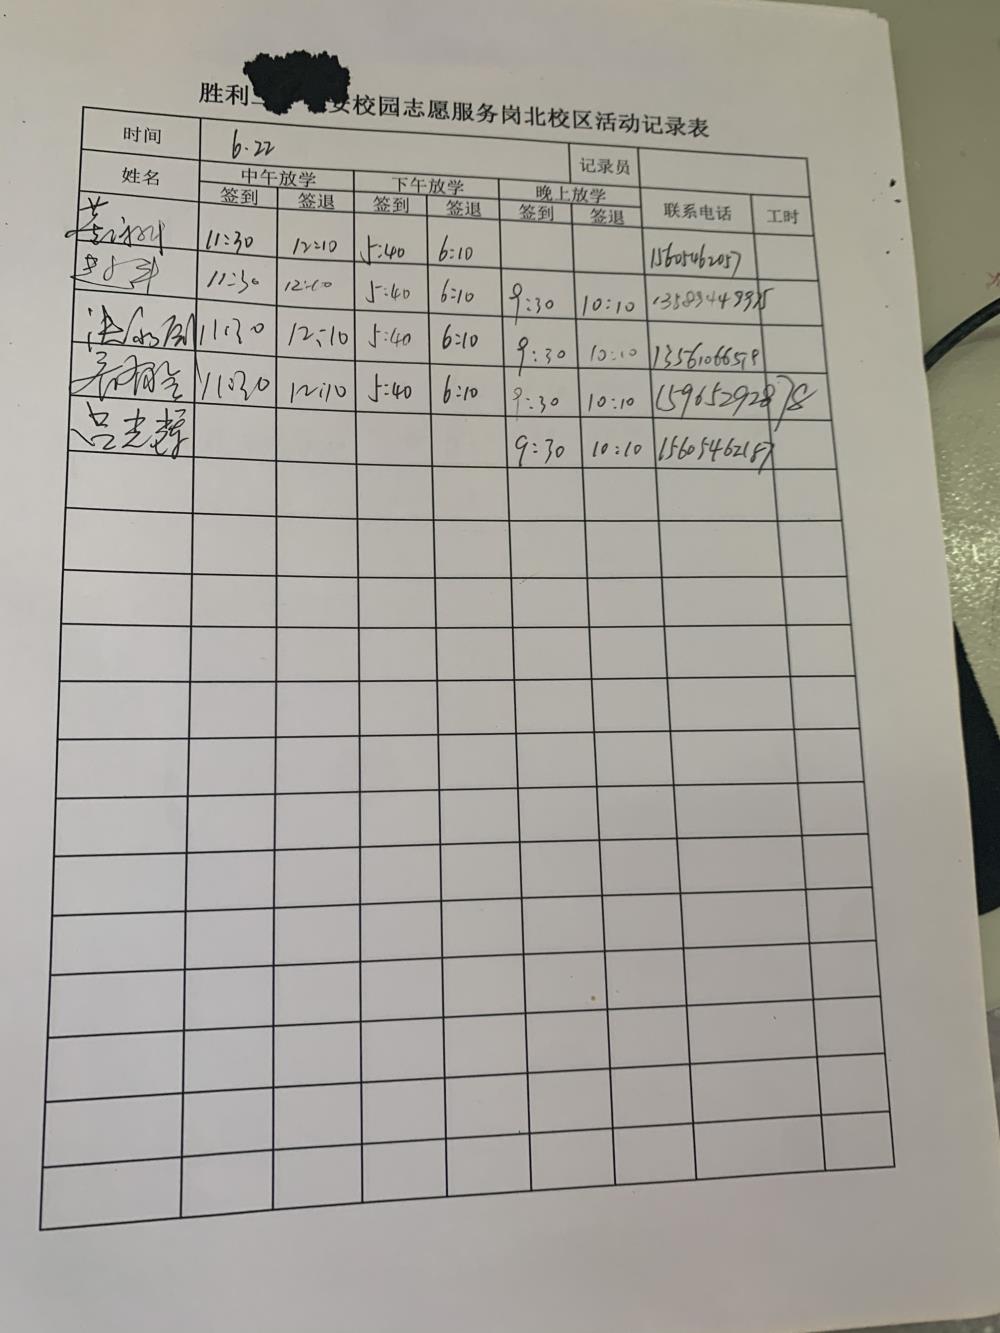 胜利 安校园志愿服务岗北校区活动记录表
时间 6.22 记录员
姓名 中午放学 下午放学 晚上放学 联系电话 工时
签到 签退 签到 签退 签到 签退
11:30 12:10 5:40 6:10 15605462057
11:30 12:10 5:40 6:10 9:30 10:10
11:30 12:10 5:40 6:10 9:30 10:10
11:30 12:10 5:40 6:10 9:30 10:10 15965292878
吕志 9:30 10:10 15605462187